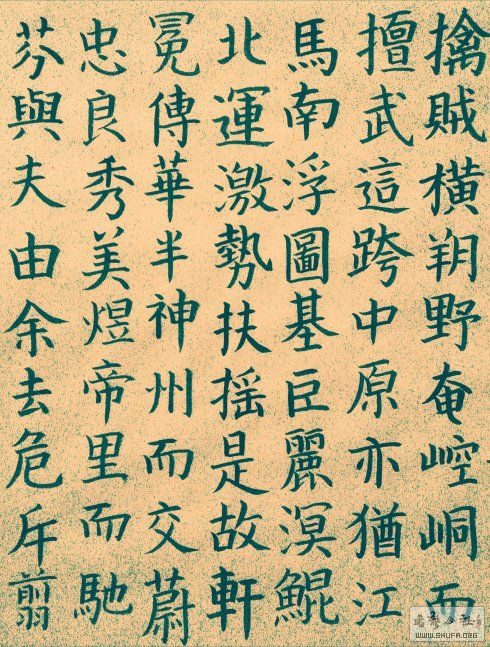 擒賊橫朔野奄崆峒而
擅武這跨中原亦猶江
馬南浮圖基巨麗溟鯤
北運激勢扶搖是故軒
冕傳華半神州而交蔚
忠良秀美煜帝里而馳
芬與夫由余去危斥翦
WWW.SHUFA.ORG